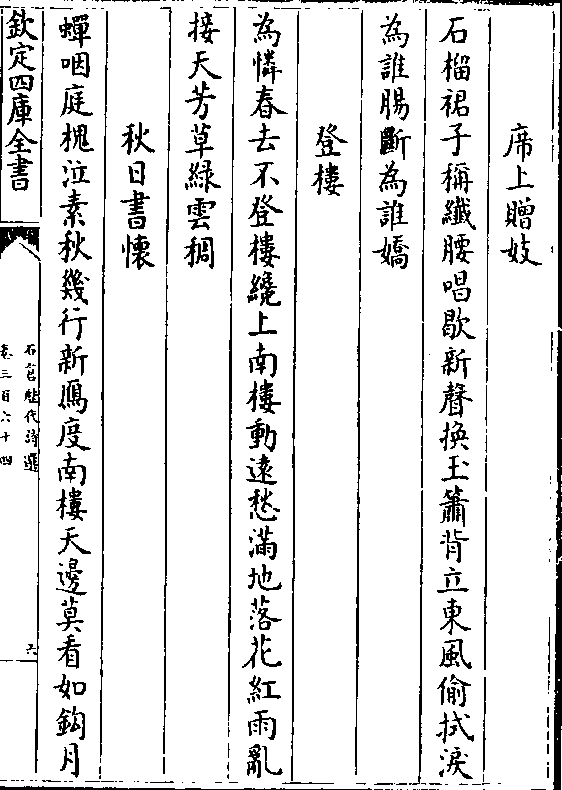 席上贈妓
石榴裙子稱纖腰唱歇新聲換玉簫背立東風偷拭淚
為誰腸斷為誰嬌
登樓
為憐春去不登樓纔上南樓動遠愁滿地落花紅雨亂
接天芳草綠雲稠
秋日書懷
蟬咽庭槐泣素秋幾行新鴈度南樓天邊莫看如鈎月
欽定四庫全書
石倉歷代詩選
卷三百六十四
六